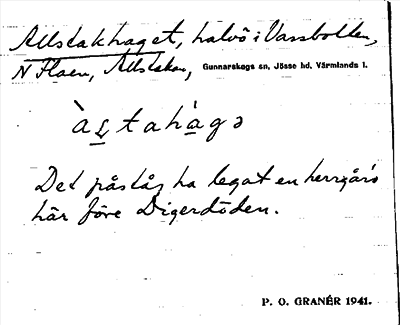 Allstakhaget, halvö i Vassbotten,
N Flaen, Allstakan, Gunnarskogs sn, Jösse hd, Värmlands l.
àʂtahàgə
Det påstås ha legat en herrgård
här före Digerdöden.
P. O. GRANÉR 1941.